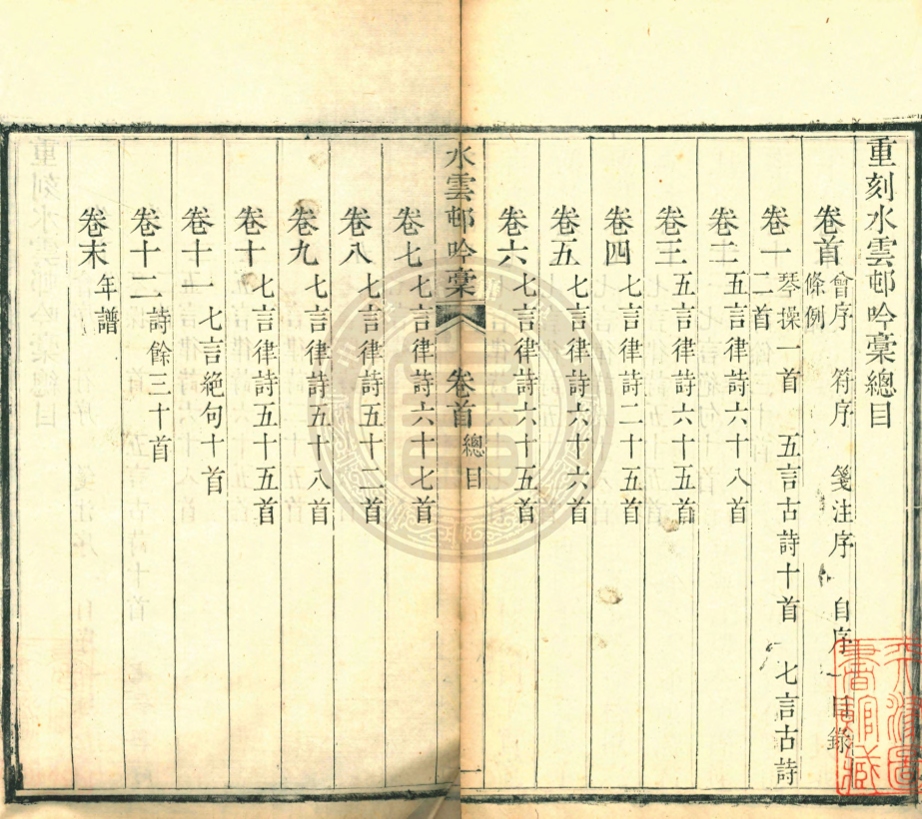 重刻水雲邨吟稾總目
卷首 會序 符序 箋注序 自序 目錄
條例
卷一 琴操一首 五言古詩十首 七言古詩
二首
卷二 五言律詩六十八首
卷三 五言律詩六十五首
卷四 七言律詩二十五首
卷五 七言律詩六十六首
卷六 七言律詩六十五首
水雲邨吟稾 卷首 總目 一
卷七 七言律詩六十七首
卷八 七言律詩五十二首
卷九 七言律詩五十八首
卷十 七言律詩五十五首
卷十一 七言絕句十首
卷十二 詩餘三十首
卷末 年譜